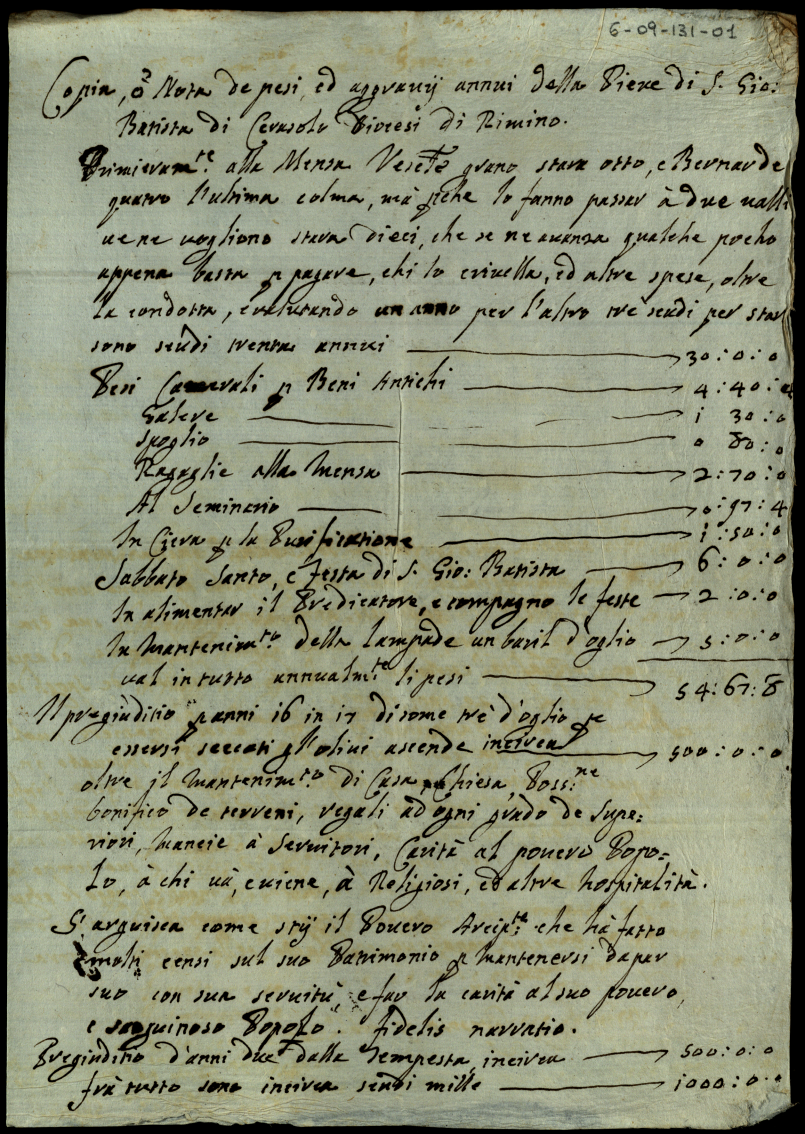 6-09-131-01
Copia, ò Nota de pesi, ed aggravij annui della Pieve di S. Gio:
Batista di Cerasolo Diocesi di Rimino.
Primieram.te alla Mensa grano stara otto, e Bernarde
quatro l'ultima colma, mà pche lo fanno passar à due valli
ve ne vogliono stara dieci, che se ne avanza qualche pocho
appena basta p pagare, chi lo crivella, ed altre spese, oltre
la condotta, e valutando un anno per l'altro trè scudi per star
sono scudi trenta annui 30:0:0
Pesi Camerali p Beni Antichi 4:40:
Galere 1 30:0
Spoglio 0 80:0
Regaglie alla Mensa 2:70:0
Al Seminario 0:97:4
In Cera p la Purificatione 1:50:0
Sabbato Santo, e festa di S. Gio: Batista 6:0:0
In alimentar il Predicatore, e compagno le feste 2:0:0
In Mantenim.to della lampade un baril d'oglio 5:0:0
val in tutto annualm.te li pesi 54:67:8
Il pregiuditio p anni 16 in 17 di some trè d'oglio p
essersi seccati gl'olivi ascende incirca 500:0:0
oltre il Mantenim.to di Casa, Chiesa, Poss.ne
bonifico de terreni, regali ad ogni grado de Supe=
riori, Mancie à Servitori, Carità al povero Popo=
lo, à chi và, e viene, à Religiosi, ed altre hospitalità.
S'arguisca come stij il Povero Arcip.te che hà fatto
molti censi sul suo Patrimonio p Mantenersi da par
suo con sua servitù, e far la carità al suo povero,
e sanguinoso Popolo. fidelis narratio.
Pregiuditio d'anni due dalla Tempesta incirca 500:0:0
frà tutto sono incirca scudi mille 1000:0:0